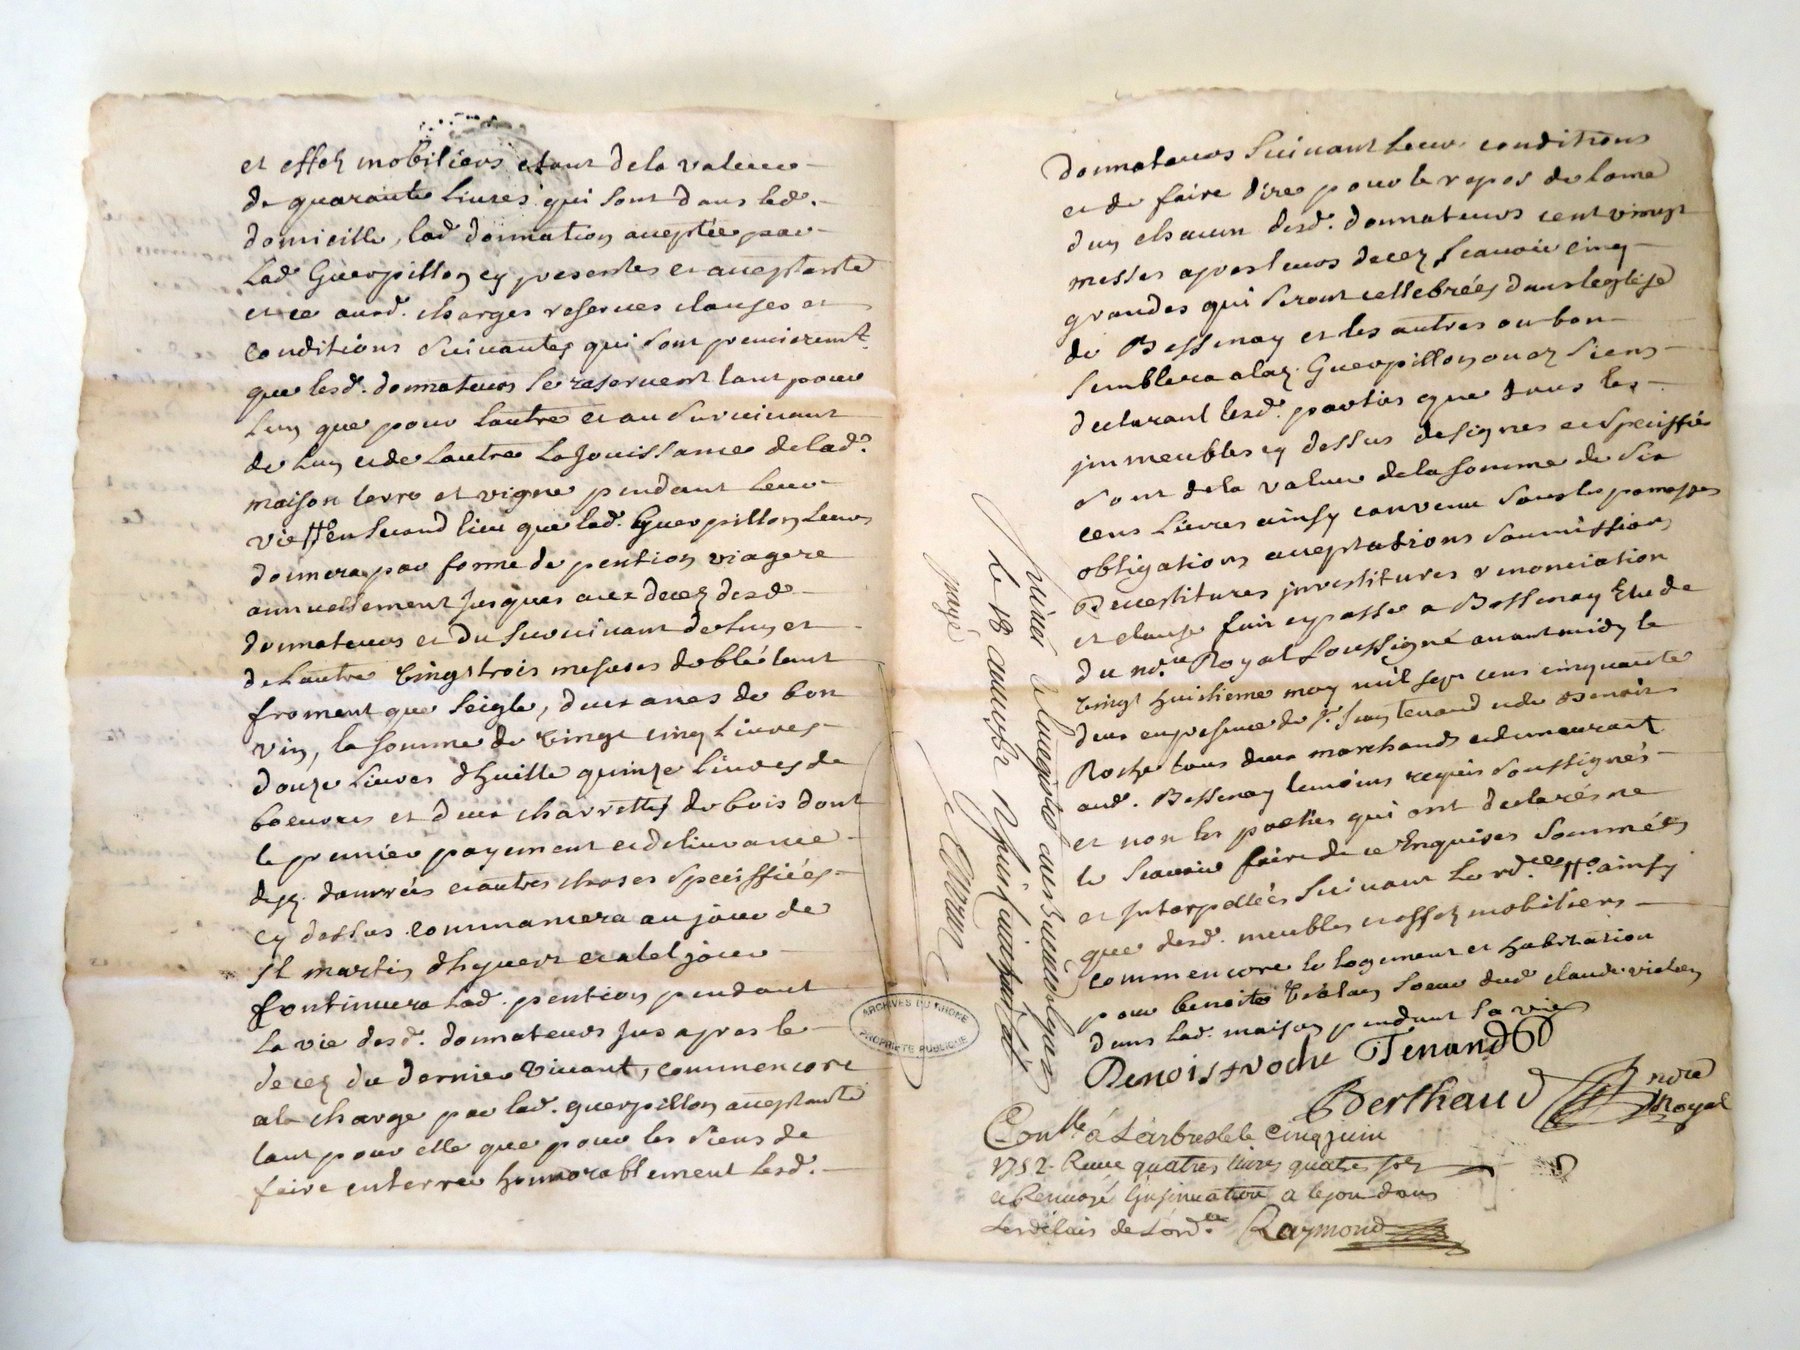 et effetz mobiliers etant dela valeur
de quarante livres qui sont dans led.
domicille, lad donnation acceptée par
Lad Guerpillon cy presentes et acceptante
et ce aux d. charges reserves clauses et
conditions suivantes qui sont premierem.t
que lesd. donnateurs se reservent tant pour
lun que pour lautre et au survivant
de lun et de lautre la jouissance de lad.
maison terre et vigne pendant leur
vie en second lieu que lad. Guerpillon leurs
donnera par forme de pention viagere
annuellement jusques aux decez desd
donnateurs et du survivant de lun et
de lautre vingt trois mesures de blé tant
froment que seigle, deux anes de bon
vin, la somme de vingt cinq livres
douze livres dhuille quinze livres de
boeurre et deux charrettes de bois dont
le premier payement et delivrance
desd. denrrées et autres choses speciffiées
cy dessus commancera au jour de
St martin dhyvert et a tel jour
continuera lad. pention pendant
la vie desd. donnateurs jus apres le
decez du dernier vivant, comme encore
a la charge par lad. guerpillon acceptante
tant pour elle que pour les siens de
faire enterrer honnorablement lesd.
donnateurs suivant leur conditions
et de faire dire pour le repos de lame
dun chacun desd. donnateurs cent vingt
messes apres leurs decez scavoir cinq
grandes qui seront cellebrées dans leglise
de Bessenay et les autres ou bon
semblera a lad. Guerpillon ou ez siens
declarant lesd. parties que tous les
immeubles cy dessus designes et speciffiés
sont de la valeur de la somme de six
cens livres ainsy convenu sous les promesses
obligations acceptations soumissions
Devestitures investitures renonciation
et clauses fait et passé a Bessenay Etude
du no.re Royal soussigné avant midy le
vingt huitieme may mil sept cens cinquante
deux en presence de s.r jean tenand et de Benoit
Roche tous deux marchands et demeurant
aud. Bessenay temoins requis soussignés
et non les parties qui ont declarés ne
le scavoir faire de ce Enquises sommées
et interpellées suivant lord.ce ainsy
que desd. meubles et effetz mobiliers
comme encore le logement et habitation
pour benoite vialan soeur dud claude vialan
dans lad. maison pendant sa vie
Benoist roche Tenand
Berthaud no.re Royal
Con.lle a Larbresle le cinq juin
1752. Receu quatres livres quatre sols
et Renvoyé linsinuation a lyon dans
les delais de Lord.ce Raymond
le 18
payé
ARCHIVES DU RHONE
PROPRIETE PUBLIQUE